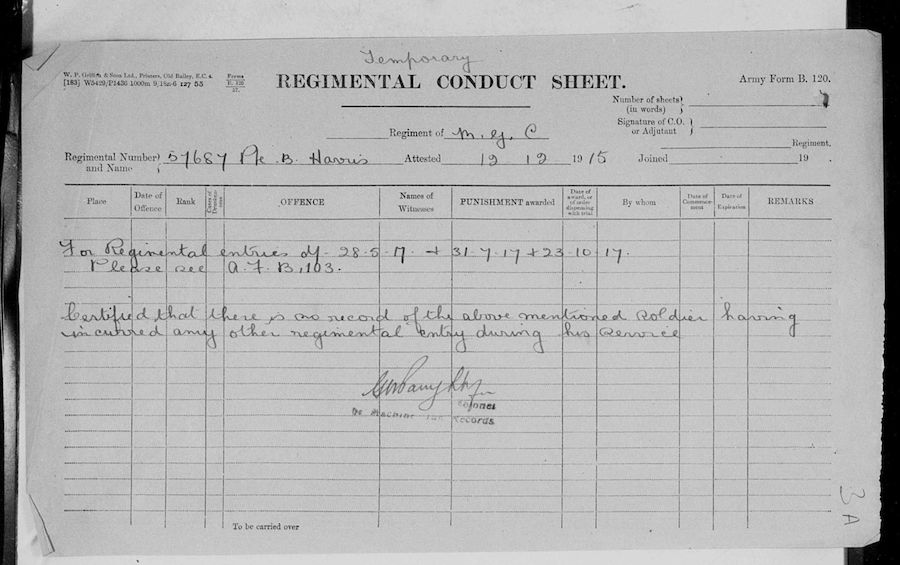 Temporary
W. P. Griffith & Sons Ltd., Printers, Old Bailey, E.C. 4.
[183] W5429/P1436 1000m 9/18x-6 127 55
Forms
B. 120
37.
REGIMENTAL CONDUCT SHEET.
Army Form B. 120.
Number of sheets
(in words)
Signature of C.O.
or Adjutant
Regiment of M. G. C
Regiment.
Regimental Number and Name 57687 Pte B. Harris Attested 12 12 1915 Joined 19 .
Place
Date of Offence
Rank
Cases of Drunkenness
OFFENCE
Names of Witnesses
PUNISHMENT awarded
Date of award, or of order dispensing with trial
By whom
Date of Commencement
Date of Expiration
REMARKS
For Regimental entries df 28-5-17. + 31-7-17 + 23-10-17.
Please see A. F. B. 103.
Certified that there is no record of the above mentioned soldier having
incurred any other regimental entry during his service
Colonel
Records
To be carried over
3A